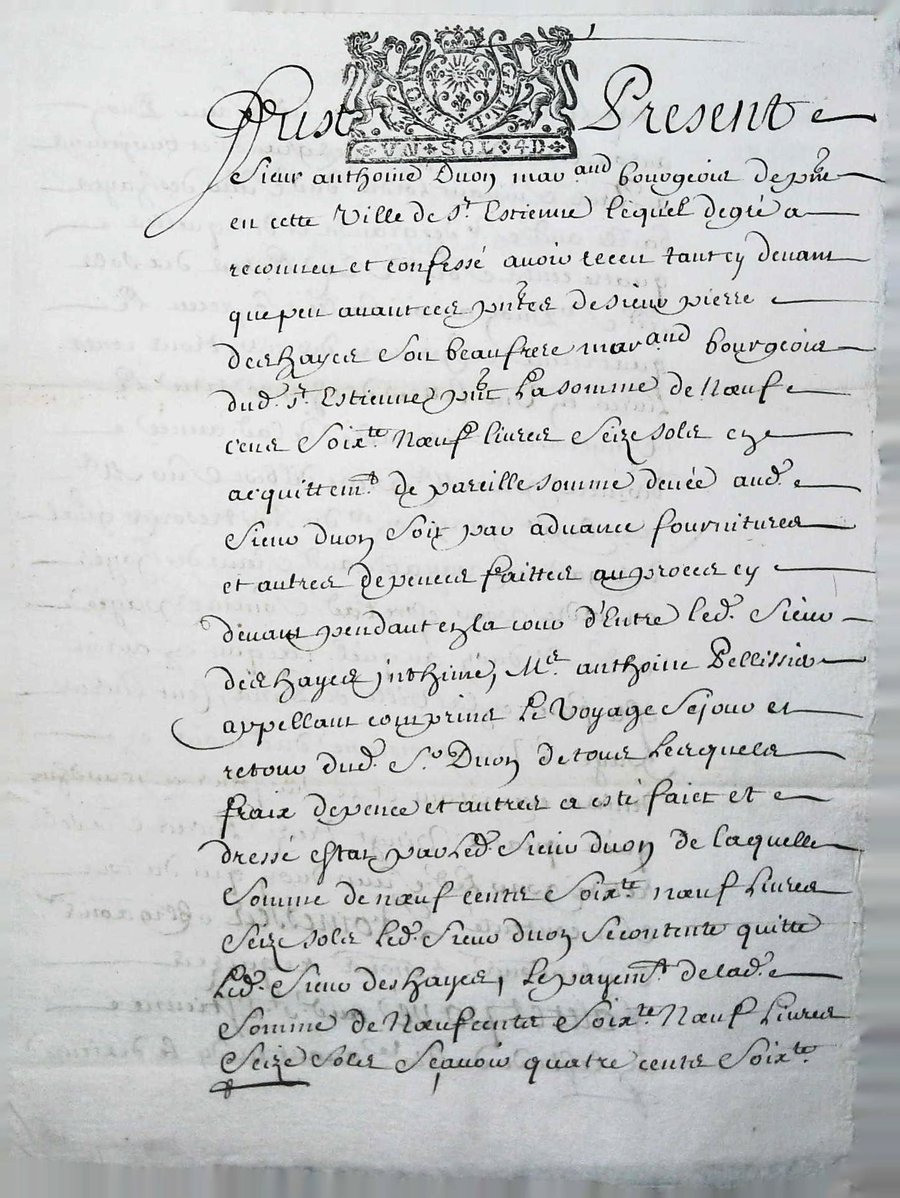 GEN. D E LYO
✤ UN ✤ SOL ✤ 4D ✤
Fust Present
Sieur anthoine Duon mar.and bourgeois de pnt
en cette Ville de St. Estienne lequel de gré a
reconneu et confessé avoir receu tant cy devant
que peu avant ces pntes de sieur pierre
deshayes son beaufrere marand bourgeois
dud. St. Estienne pnt La somme de Nœuf
cens Soixte Nœuf livres Seize sols en
acquittemt de pareille somme deuée aud.
Sieur duon Soit par advance fournitures
et autres depences faittes au proces cy
devant pendant en la cour d'Entre led. Sieur
deshayes jnthimé, Me. anthoine Pellissier
appellant comprins Le Voyage Sejour et
retour dud. Sr. Duon de tous Lesquels
fraix depence et autres a esté faict et
dressé estat par Led. Sieur duon de laquelle
Somme de nœuf cents Soixte nœuf Livres
Seize sols Led. Sieur duon se contente quitte
Led. Sieur deshayes, Le payemt de lad.
Somme de Nœuf cents Soixte Nœuf Livres
Seize Sols Sçavoir quatre cents Soixte